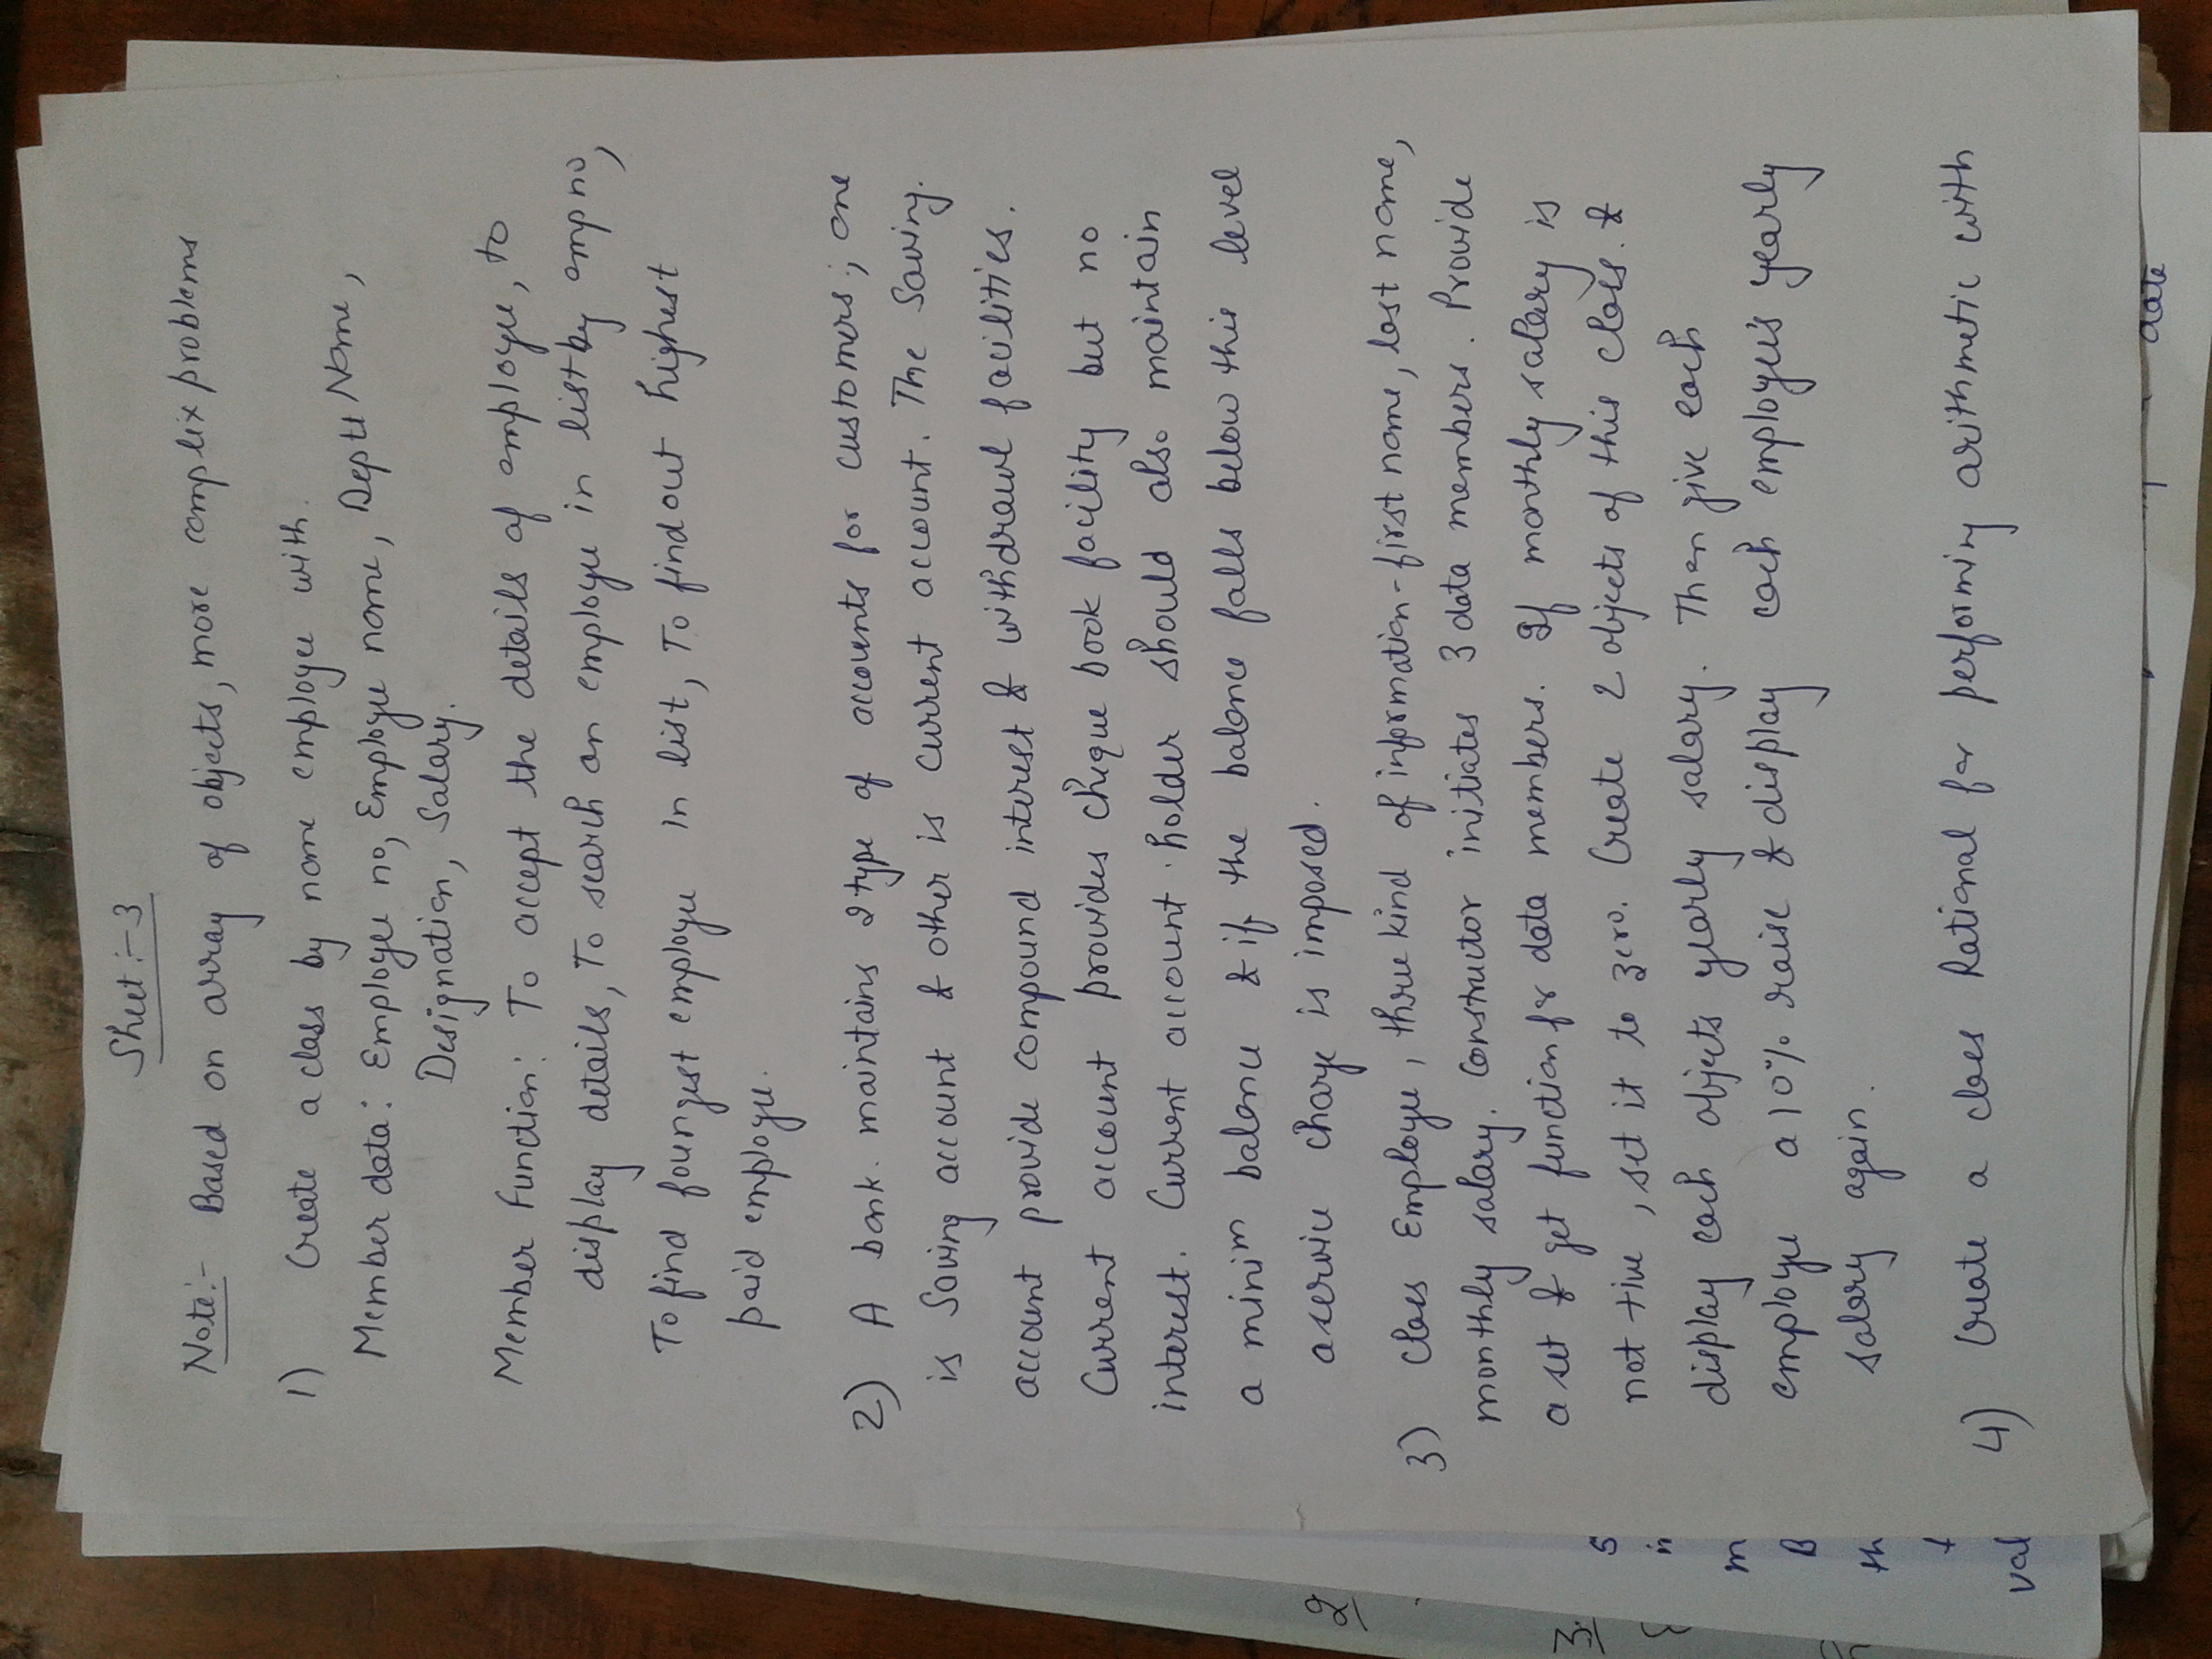 Sheet :- 3
Note:- Based on array of objects, more complex problems
1) Create a class by name employee with.
Member data: Employee no, Employee name, Deptt Name,
Designation, Salary.
Member function: To accept the details of employee, to
display details, To search an employee in list by emp no,
To find foungest employee in list, To findout highest
paid employee.
2) A bank maintains 2 type of accounts for customers; one
is Saving account & other is current account. The Saving.
account provide compound interest & withdrawl facilities.
Current account provides cheque book facility but no
interest. Current account holder should also maintain
a minim balance & if the balance falls below this level
a service charge is imposed.
3) class Employee, three kind of information - first name, last name,
monthly salary. Constructor initiates 3 data members. Provide
a set & get function for data members. If monthly salary is
not +ive, set it to zero. Create 2 objects of this class. &
display each objects yearly salary. Then give each
employee a 10% raise & display each employee's yearly
salary again.
4) Create a class Rational for performing arithmetic with
2
3.
5
in
m
B
th
t
val
date